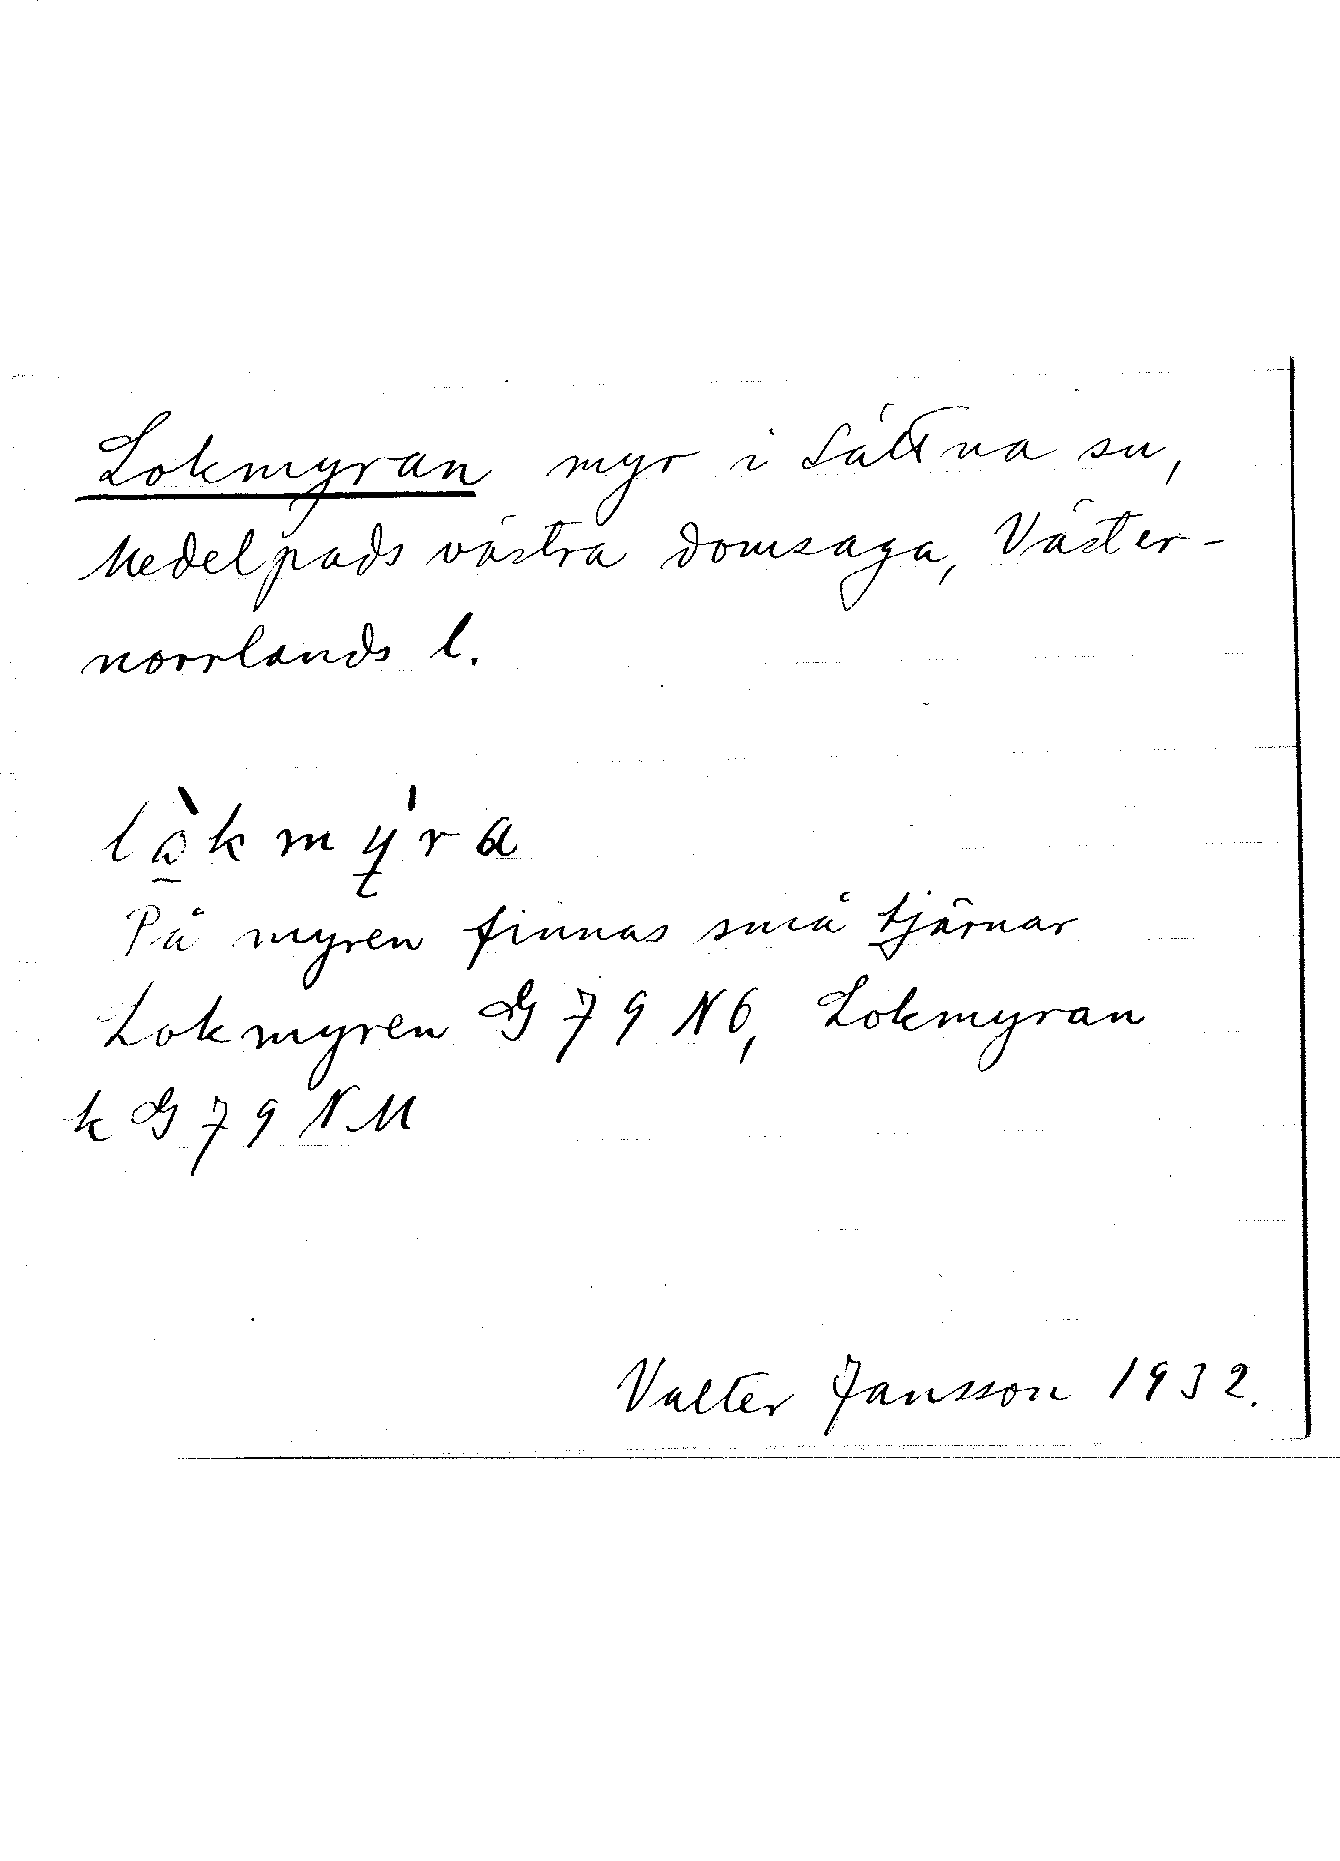 Lokmyran myr i Sättna sn,
Medelpads västra domsaga, Väster-
norrlands l.
lò̱kmy̍ra
På myren finnas små tjärnar
Lokmyren G 79 N6, Lokmyran
k G 79 NM
Valter Jansson 1932.